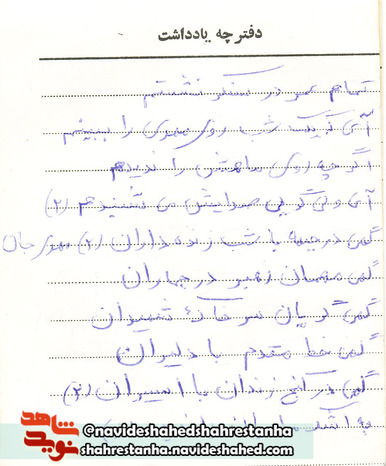 دفترچه یادداشت
تمام عمر در سنگر نشستم
آی که یک شب روی مهدی را ببینم
اگر چه روی ماهش را ندیدم
آی ولی گویی صدایش می شنیدم (۲)
گهی در جبهه با شب زنده داران (۲) مهدی جان
گهی مهمان رهبر در جماران
گهی گریان سر خاک شهیدان
گهی خط مقدم با دلیران
گهی در کنج زندان با اسیران (۲)
شاهد
نوید
@navideshahedshahrestanha
shahrestanha.navideshahed.com